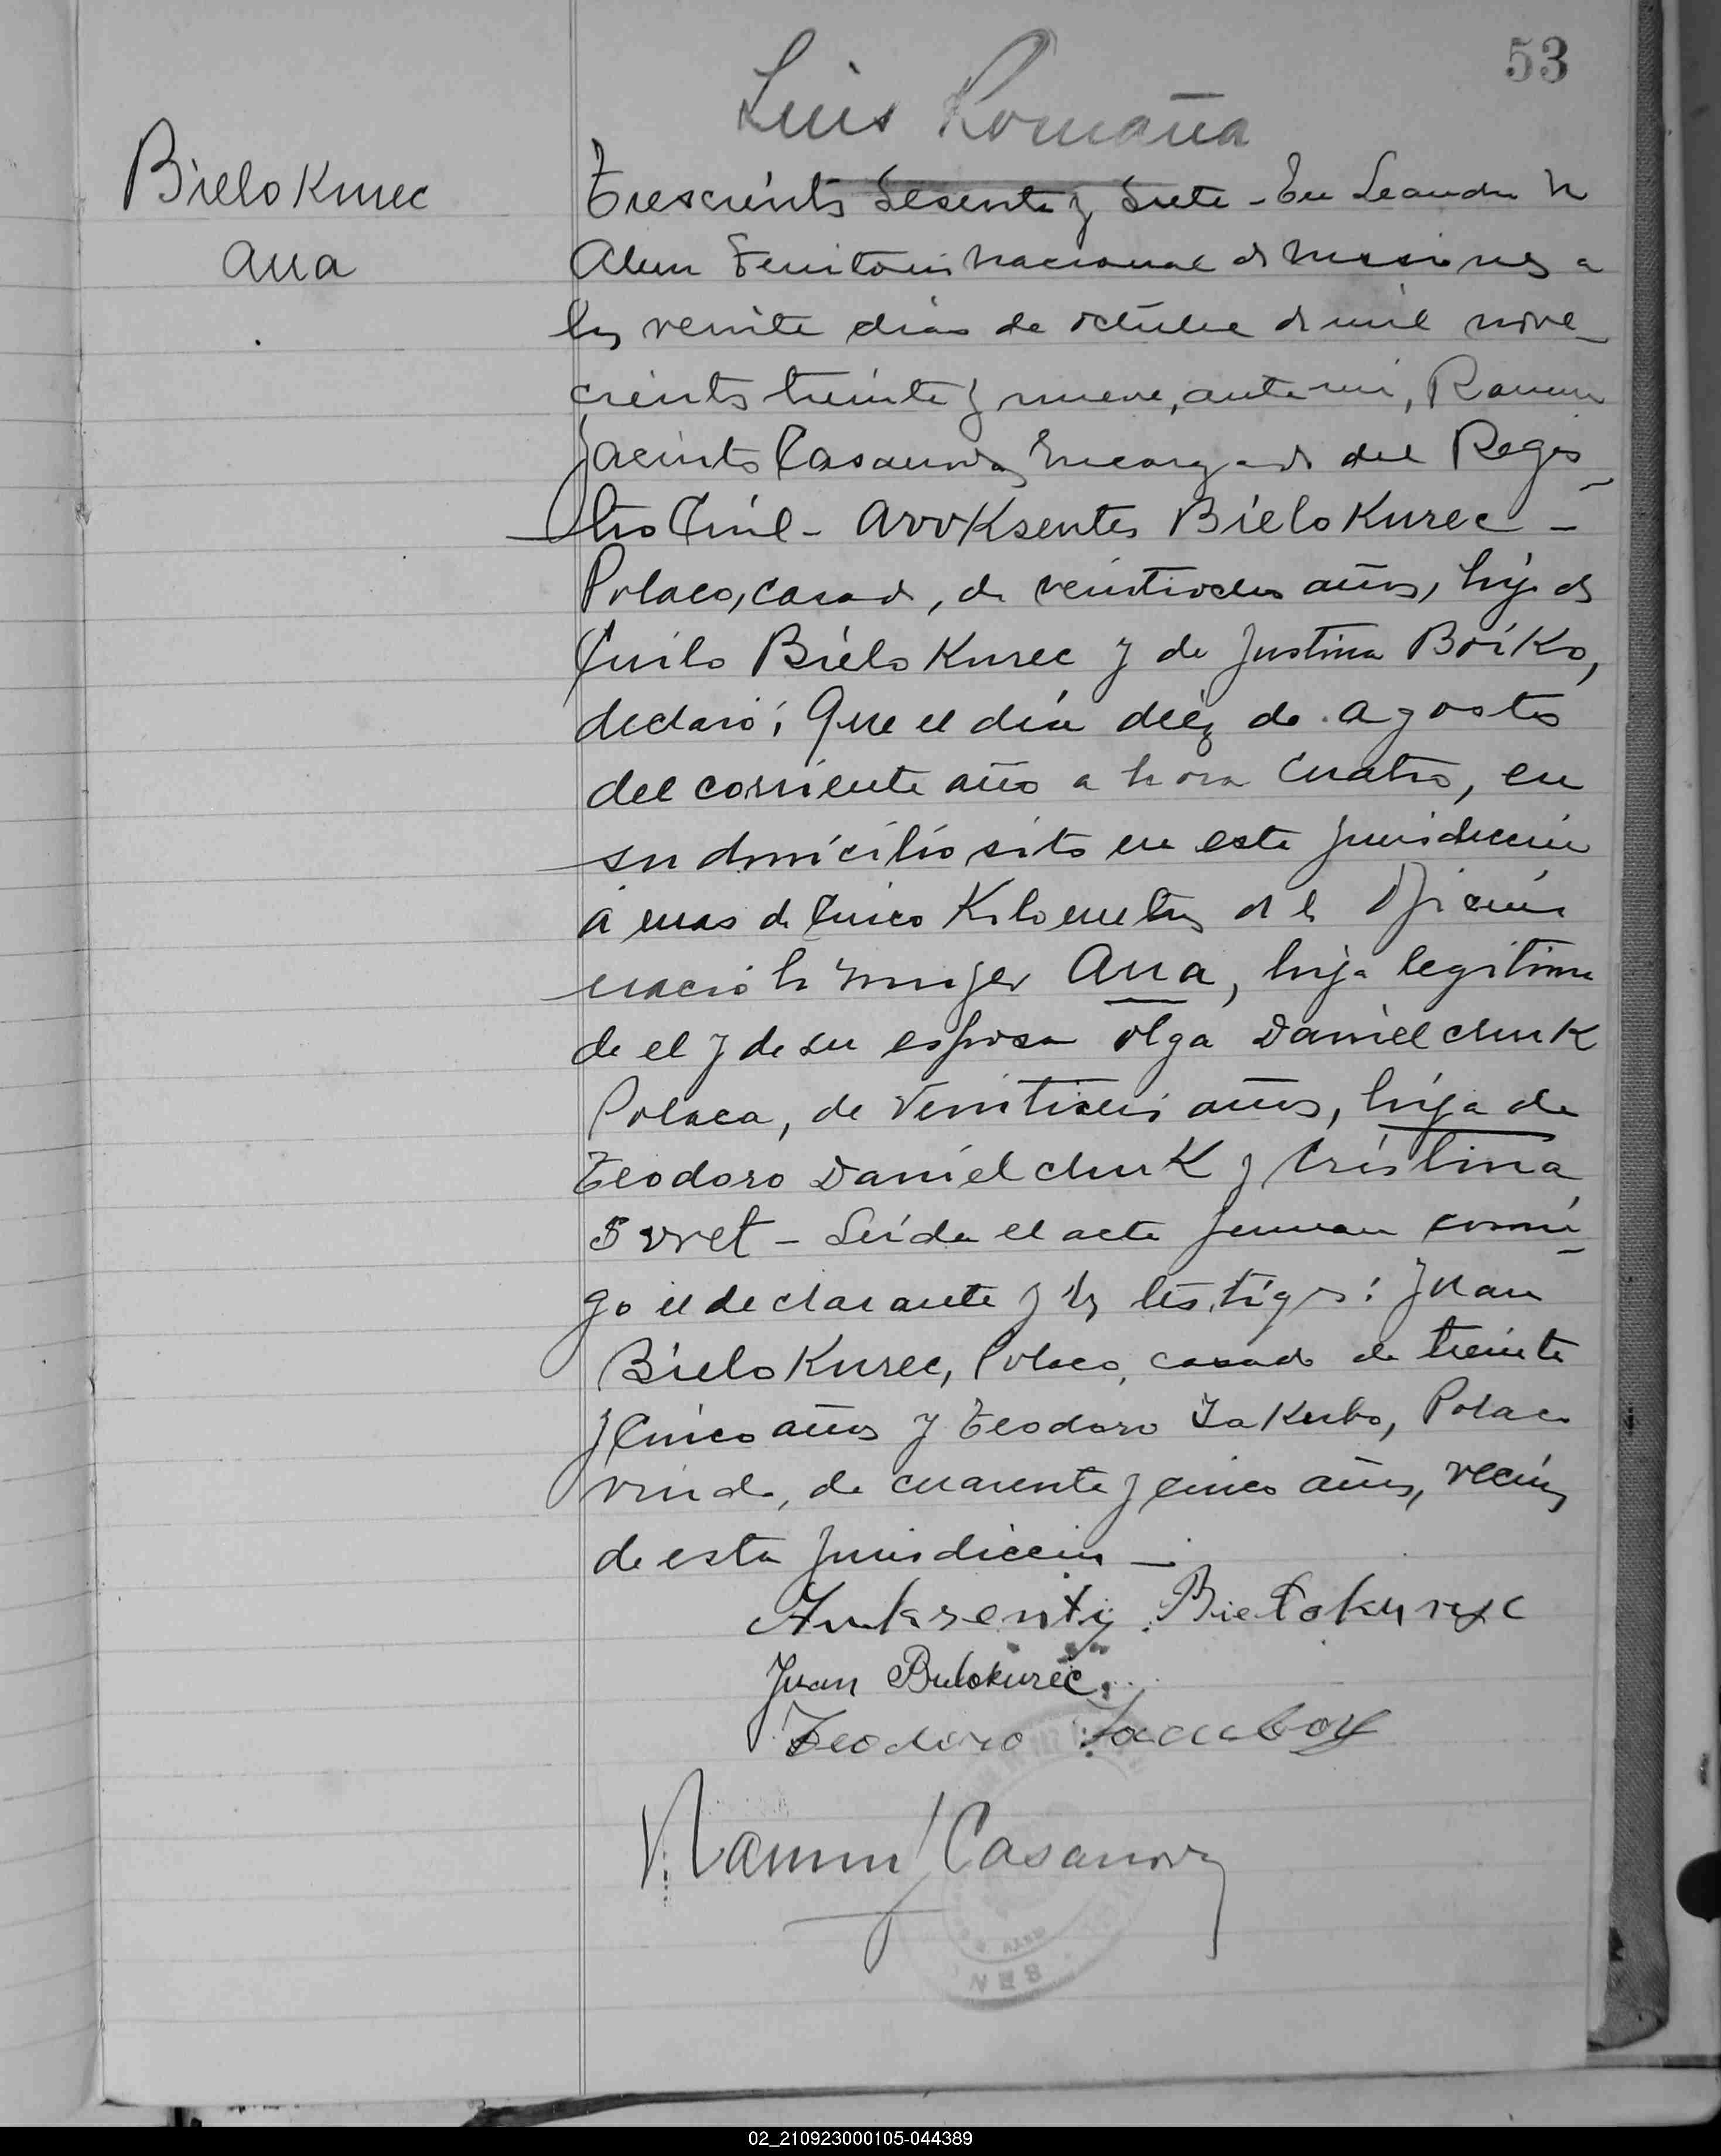 53
Luis Romaña
Bielo Kurec
Ana
Trescients Sesenta y Siete - En Leandro N
Alem Territorio Nacional de Misiones a
los veinte dias de octubre de mil nove-
cientos treinta y nueve, ante mi, Ramon
Jacinto Casanova Encargado del Regis-
tro Civil - Avvksentes Bielo Kurec -
Polaco, casado, de veintiodos años, hijo de
Bielo Kurec y de Justina Boiko,
declaró: Que el día diéz de Agosto
del corriente año a hora Cuatro, en
su domicilio sito en esta jurisdiccion
á mas de Cinco Kilometros de la Oficina
nació la mujer Ana, hija legitima
de el y de su esposa Olga Danielchuk
Polaca, de Veintiseis años, hija de
Teodoro Danielchuk y Cristina
- Leida el acta firman conmi-
go el declarante y los testigos: Juan
Bielo Kurec, Polaco, casado de treinta
y Cinco años y Teodoro Iakubo, Polaco
viudo, de cuarenta y cinco años, vecinos
de esta jurisdiccion -
Awksentij Biełokuryc
Juan Bielokurec
Teodoro
Ramon J Casanova
NES
02_210923000105-044389